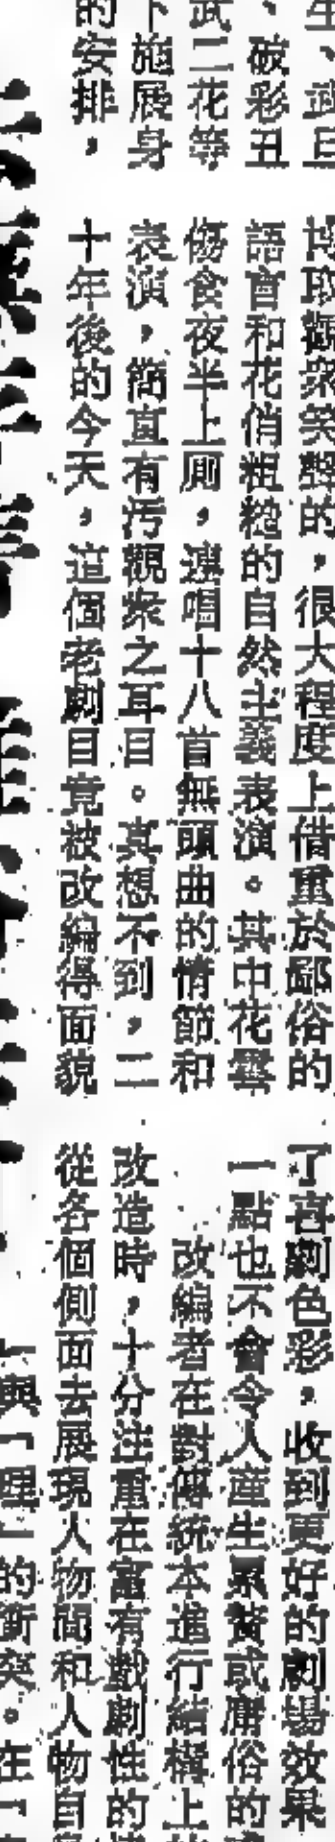 生、武旦
、破彩丑
武二花等
下施展身
的安排，
博取觀衆笑聲的，很大程度上借重於鄙俗的
語言和花俏粗糙的自然主義表演。其中花雲
傷食夜半上厠，連唱十八首無頭曲的情節和
表演，簡直有污觀衆之耳目。真想不到，二
十年後的今天，這個老劇目竟被改編得面貌
了喜劇色彩，收到更好的劇場效果
一點也不會令人產生累贅或庸俗的
改編者在對傳統本進行結構上
改造時，十分注重在富有戲劇性的
從各個側面去展現人物間和人物自
與「理」的衝突。在「